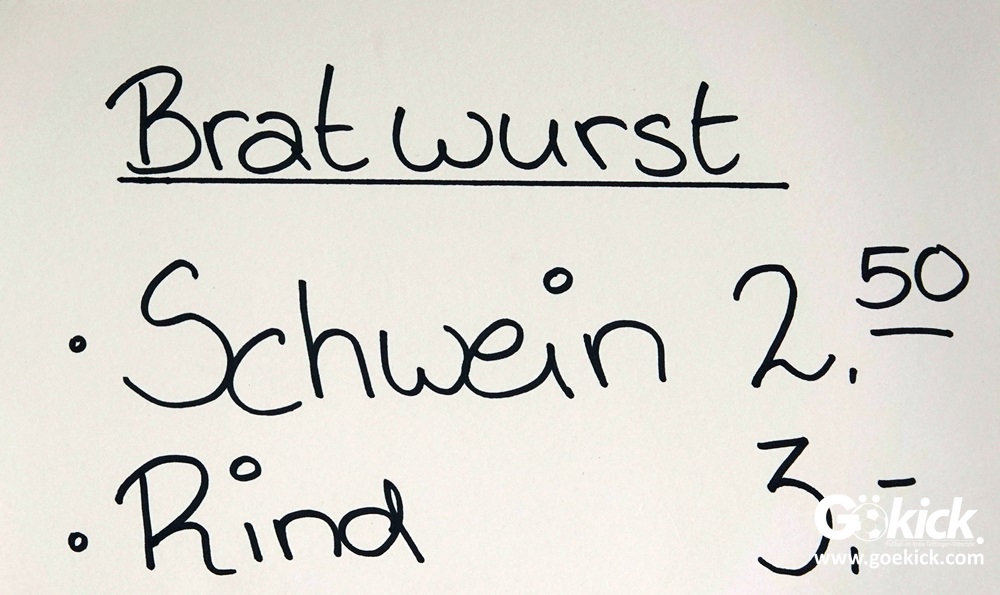 Bratwurst
• Schwein 2.50
• Rind 3.-
Gökick.
www.goekick.com